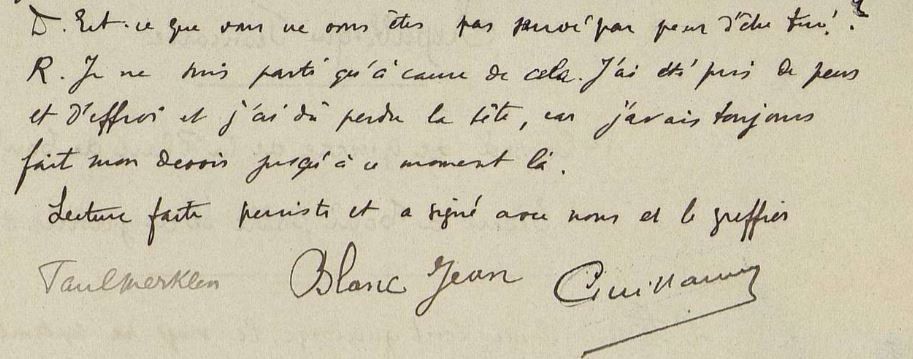 D. Est-ce que vous ne vous êtes pas sauvé par peur d'être tué ?
R. Je ne suis parti qu'à cause de cela. J'ai été pris de peur
et d'effroi et j'ai dû perdre la tête, car j'avais toujours
fait mon devoir jusqu'à ce moment là.
Lecture faite persiste et a signé avec nous et le greffier
Paul Merklen Blanc Jean Guillaume